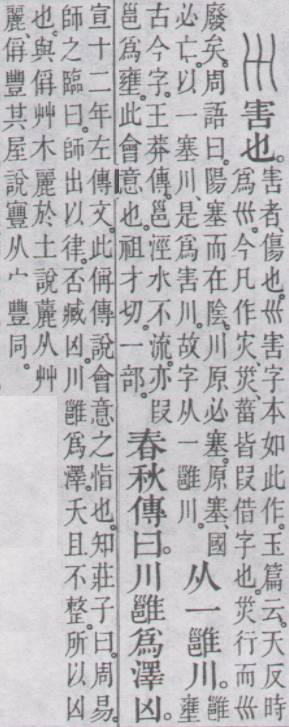 𡿧害也。害者、傷也。𡿧害字本如此作。玉篇云。天反時
爲𡿧。今凡作灾、災、葘皆叚借字也。災行而𡿧
廢矣。周語曰。陽塞而在陰。川原必塞。原塞、國
必亡。以一塞川、是爲害川。故字从一雝川。从一雝川。雝壅
古今字。王莽傳。邕涇水不流。亦叚
邕爲壅。此會意也。祖才切。一部。春秋傳曰。川雝爲澤凶。
宣十二年左傳文。此偁傳說會意之恉也。知莊子曰。周易。
師之臨曰。師出以律。否臧凶。川雝爲澤。夭且不整。所以凶
也。與偁艸木麗於土說䕻从艸
麗、偁豐其屋說寷从宀豐同。